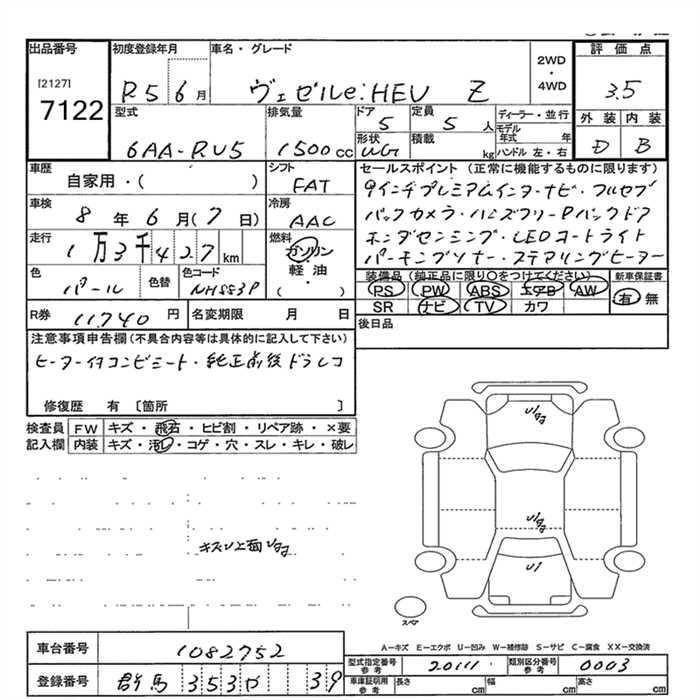 出品番号 初度登録年月 車名・グレード 2WD・4WD 評価点
[2127]
7122
R5 6月 ヴェゼルe:HEV Z 3.5
型式 排気量 ドア 定員 ディーラー・並行 外装 内装
6AA-RU5 1500cc 5 5人 モデル年式 年 D B
形状 積載 kg ハンドル 左・右
WG
車歴 シフト セールスポイント (正常に機能するものに限ります)
自家用・( ) FAT 9インチプレミアムインターナビ・フルセグ
車検 冷房 バックカメラ・ハンズフリーPバックドア
8年6月(7日) AAC ホンダセンシング・LEDコートライト
走行 燃料 パーキングソナー・ステアリングヒーター
1万3千427km ガソリン
軽油
( ・ )
色 色替 色コード 装備品(純正品に限り○をつけてください) 新車保証書
パール NH883P PS PW ABS エアB AW 有 無
SR ナビ TV カワ
R券 11,740円 名変期限 月 日 後日品
注意事項申告欄(不具合内容等は具体的に記入して下さい)
ヒーター付コンビシート・純正前後ドラレコ
修復歴 有 〔箇所 〕
検査員 FW キズ・飛石・ヒビ割・リペア跡・×要
記入欄 内装 キズ・汚レ・コゲ・穴・スレ・キレ・破レ
U1
スペア
A-キズ E-エクボ U-凹み W-補修跡 S-サビ C-腐食 XX-交換済
車台番号 1082752
型式指定番号 参考 20111 類別区分番号 参考 0003
登録番号 群馬 353 39
車庫証明用 参考 長さ cm 幅 cm 高さ cm